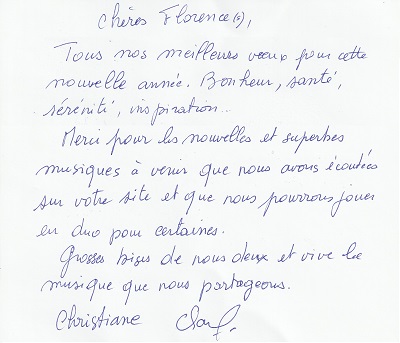 Chères Florence(s),
Tous nos meilleurs vœux pour cette
nouvelle année. Bonheur, santé,
sérénité, inspiration..
Merci pour les nouvelles et superbes
musiques à venir que nous avons écoutées
sur votre site et que nous pourrons jouer
en duo pour certaines.
Grosses bises de nous deux et vive la
musique que nous partageons.
Christiane